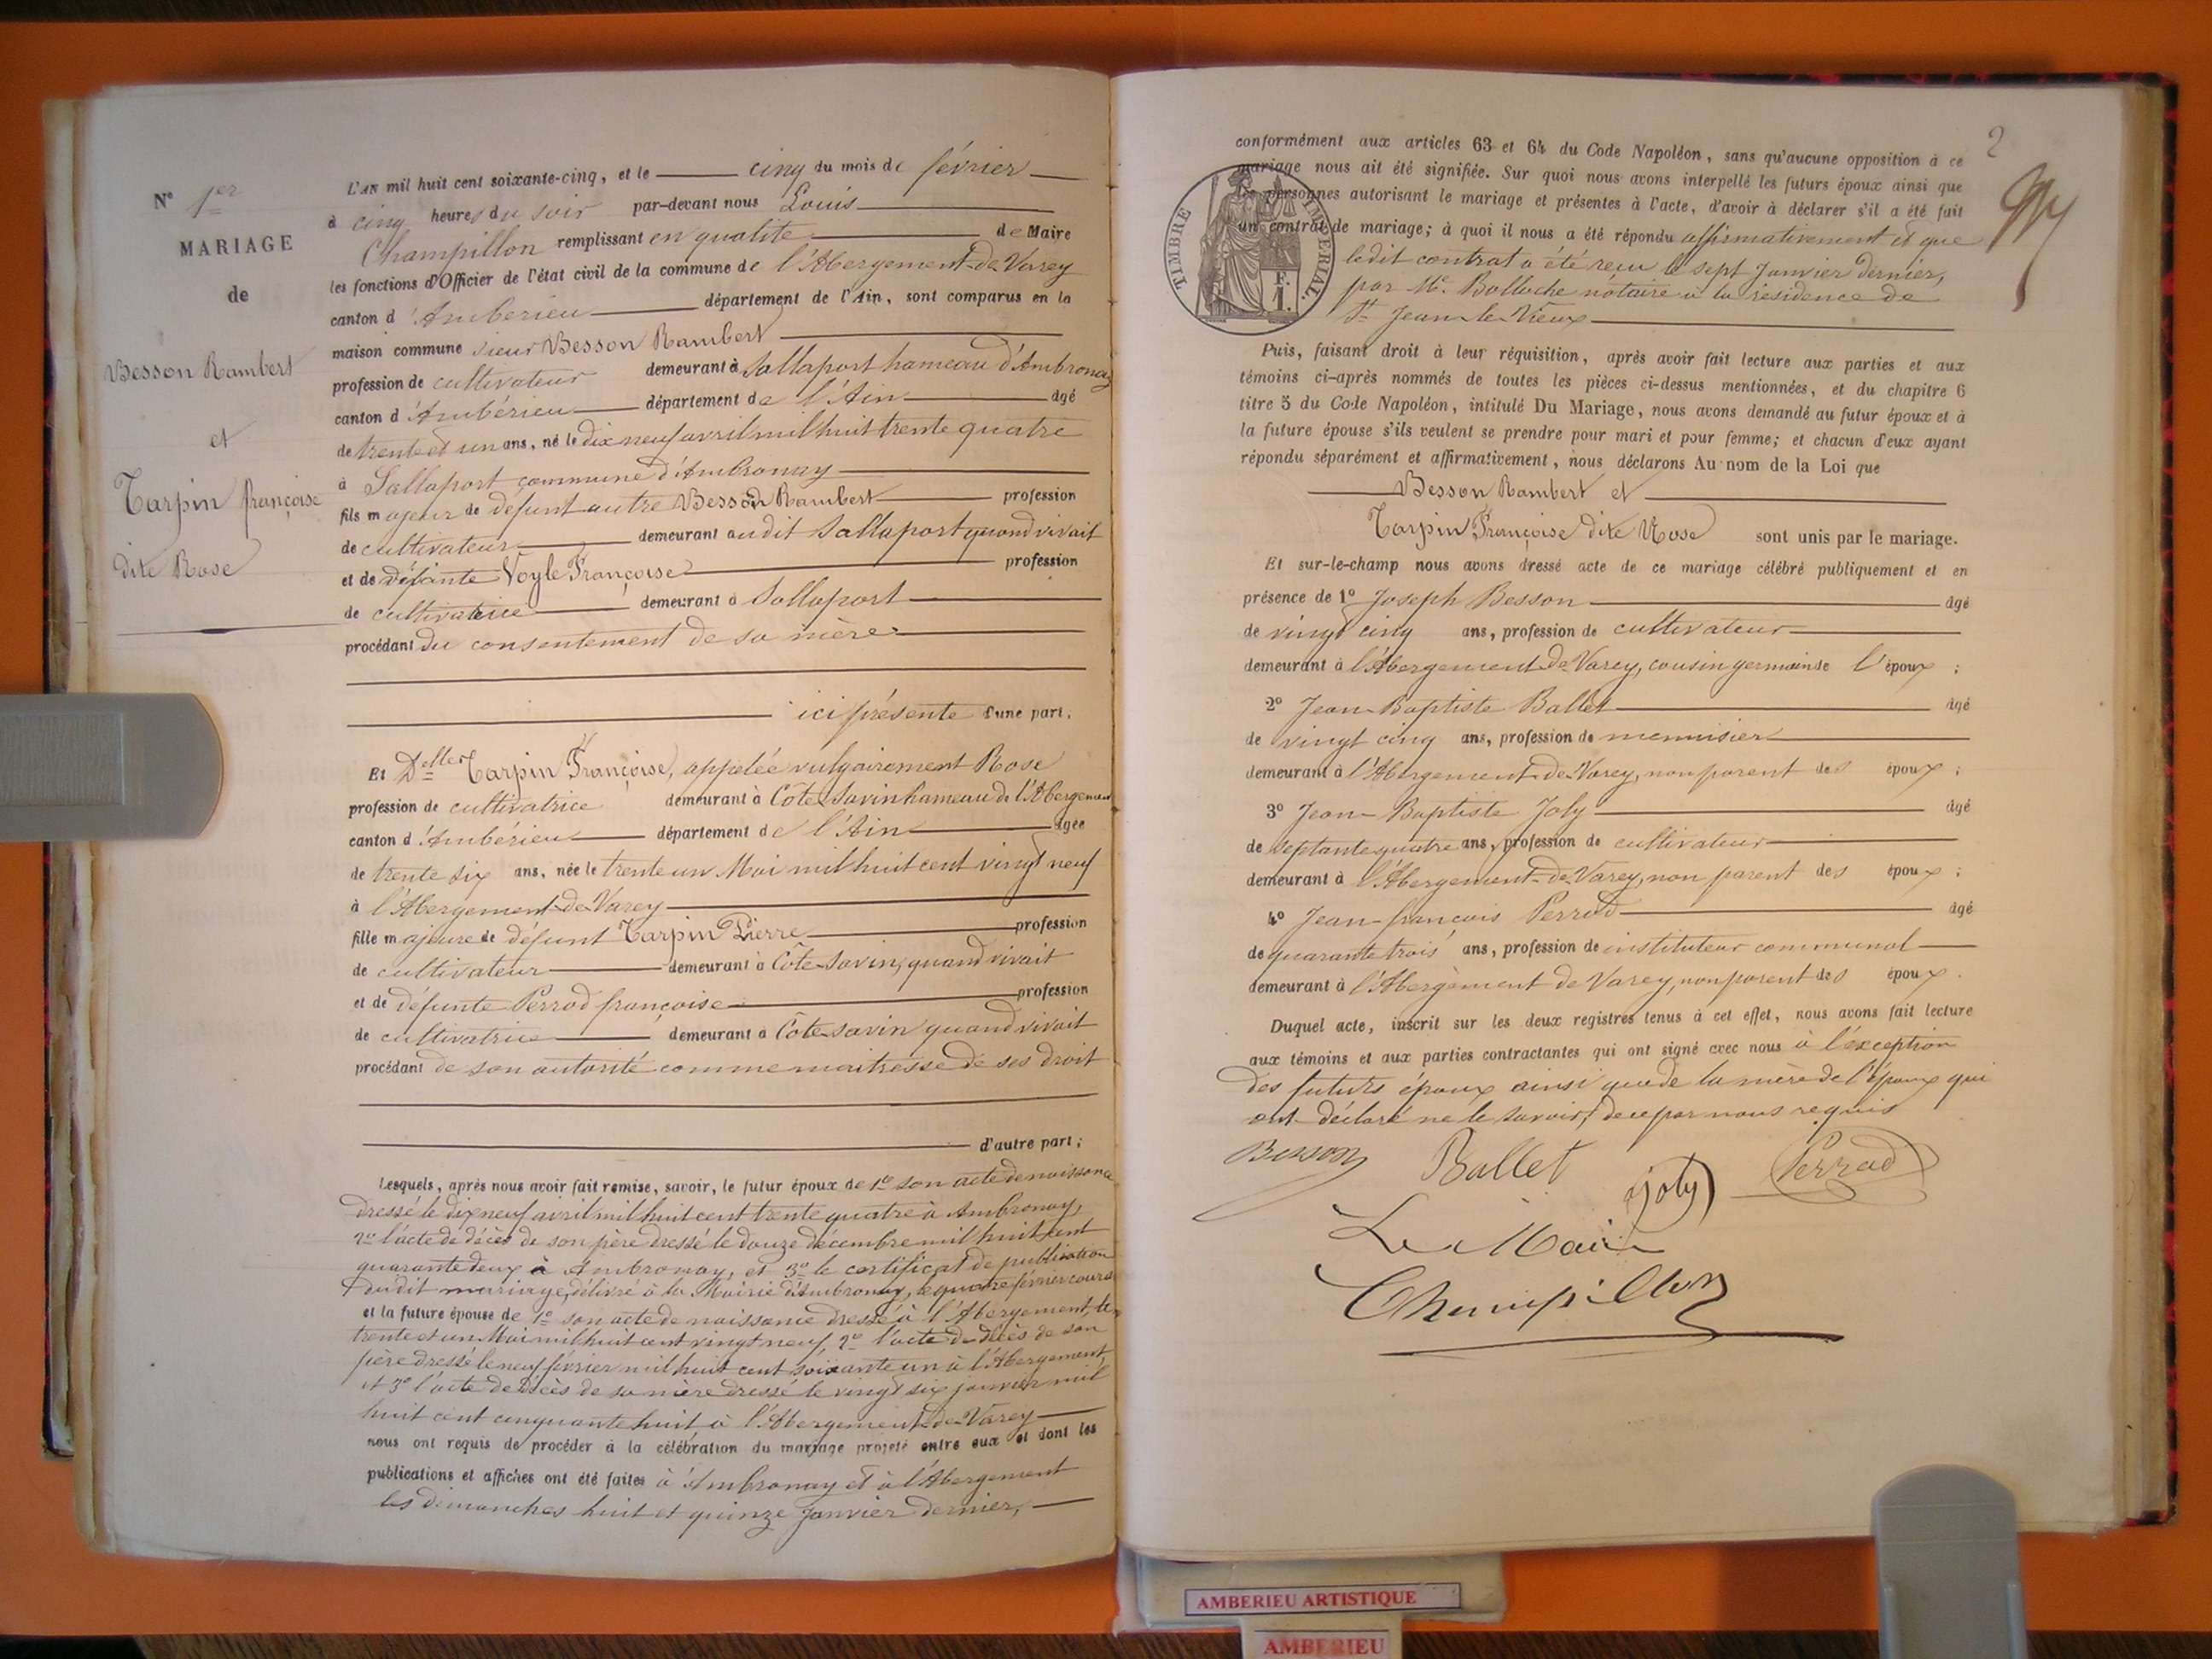 N° 1er
MARIAGE
de
Besson Rambert
et
Tarpin françoise
dite Rose
L'AN mil huit cent soixante-cinq, et le cinq du mois de février
à cinq heures du soir par-devant nous Louis
Champillon remplissant en qualité de Maire
les fonctions d'Officier de l'état civil de la commune de l'Abergement-de-Varey
canton d'Ambérieu département de l'Ain, sont comparus en la
maison commune sieur Besson Rambert
profession de cultivateur demeurant à Sallaport hameau d'Ambronay
canton d'Ambérieu département de l'Ain âgé
de trente et un ans, né le dix neuf avril mil huit trente quatre
à Sallaport commune d'Ambronay
fils majeur de défunt autre Besson Rambert profession
de cultivateur demeurant audit Sallaport quand vivait
et de défunte Voyle Françoise profession
de cultivatrice demeurant à Sallaport
procédant du consentement de sa mère
ici présente d'une part.
Et Delle Tarpin Françoise, appelée vulgairement Rose
profession de cultivatrice demeurant à Côte-Savin hameau de l'Abergement
canton d'Ambérieu département de l'Ain âgée
de trente six ans, née le trente un Mai mil huit cent vingt neuf
à l'Abergement-de-Varey
fille majeure de défunt Tarpin Pierre profession
de cultivateur demeurant à Côte-Savin, quand vivait
et de défunte Perrod françoise profession
de cultivatrice demeurant à Côte-Savin quand vivait
procédant de son autorité comme maitresse de ses droit
d'autre part;
Lesquels, après nous avoir fait remise, savoir, le futur époux de 1° son acte de naissance
dressé le dix neuf avril mil huit cent trente quatre à Ambronay,
2° l'acte de décès de son père dressé le douze décembre mil huit cent
quarante deux à Ambronay, et 3° le certificat de publication
dudit mariage, délivré à la Mairie d'Ambronay, le quatre février courant
et la future épouse de 1° son acte de naissance dressé à l'Abergement, le
trente et un Mai mil huit cent vingt neuf, 2° l'acte de décès de son
père dressé le neuf février mil huit cent soixante un à l'Abergement,
et 3° l'acte de décès de sa mère dressé le vingt six janvier mil
huit cent cinquante huit à l'Abergement-de-Varey
nous ont requis de procéder à la célébration du mariage projeté entre eux et dont les
publications et affiches ont été faites à Ambronay et à l'Abergement
les dimanches huit et quinze Janvier dernier,
2
conformément aux articles 63 et 64 du Code Napoléon, sans qu'aucune opposition à ce
mariage nous ait été signifiée. Sur quoi nous avons interpellé les futurs époux ainsi que
personnes autorisant le mariage et présentes à l'acte, d'avoir à déclarer s'il a été fait
un contrat de mariage; à quoi il nous a été répondu affirmativement et que
ledit contrat a été reçu le sept Janvier dernier,
par Me. Bolluche notaire à la résidence de
St Jean-le-Vieux
TIMBRE IMPERIAL.
F.
1.
Puis, faisant droit à leur réquisition, après avoir fait lecture aux parties et aux
témoins ci-après nommés de toutes les pièces ci-dessus mentionnées, et du chapitre 6
titre 5 du Code Napoléon, intitulé Du Mariage, nous avons demandé au futur époux et à
la future épouse s'ils veulent se prendre pour mari et pour femme; et chacun d'eux ayant
répondu séparément et affirmativement, nous déclarons Au nom de la Loi que
Besson Rambert et
Tarpin Françoise dite Rose sont unis par le mariage.
Et sur-le-champ nous avons dressé acte de ce mariage célébré publiquement et en
présence de 1° Joseph Besson âgé
de vingt cinq ans, profession de cultivateur
demeurant à l'Abergement-de-Varey, cousin germain de l'époux;
2° Jean-Baptiste Ballet âgé
de vingt cinq ans, profession de menuisier
demeurant à l'Abergement-de-Varey, non parent des époux;
3° Jean-Baptiste Joly âgé
de septante quatre ans, profession de cultivateur
demeurant à l'Abergement-de-Varey, non parent des époux;
4° Jean-françois Perrod âgé
de quarante trois ans, profession de instituteur communal
demeurant à l'Abergement de Varey, non parent des époux.
Duquel acte, inscrit sur les deux registres tenus à cet effet, nous avons fait lecture
aux témoins et aux parties contractantes qui ont signé avec nous à l'exception
des futurs époux ainsi que de la mère de l'époux qui
ont déclaré ne le savoir, de ce par nous requis
Besson Ballet Joly Perrod
Le Maire
Champillon
AMBERIEU ARTISTIQUE
AMBERIEU